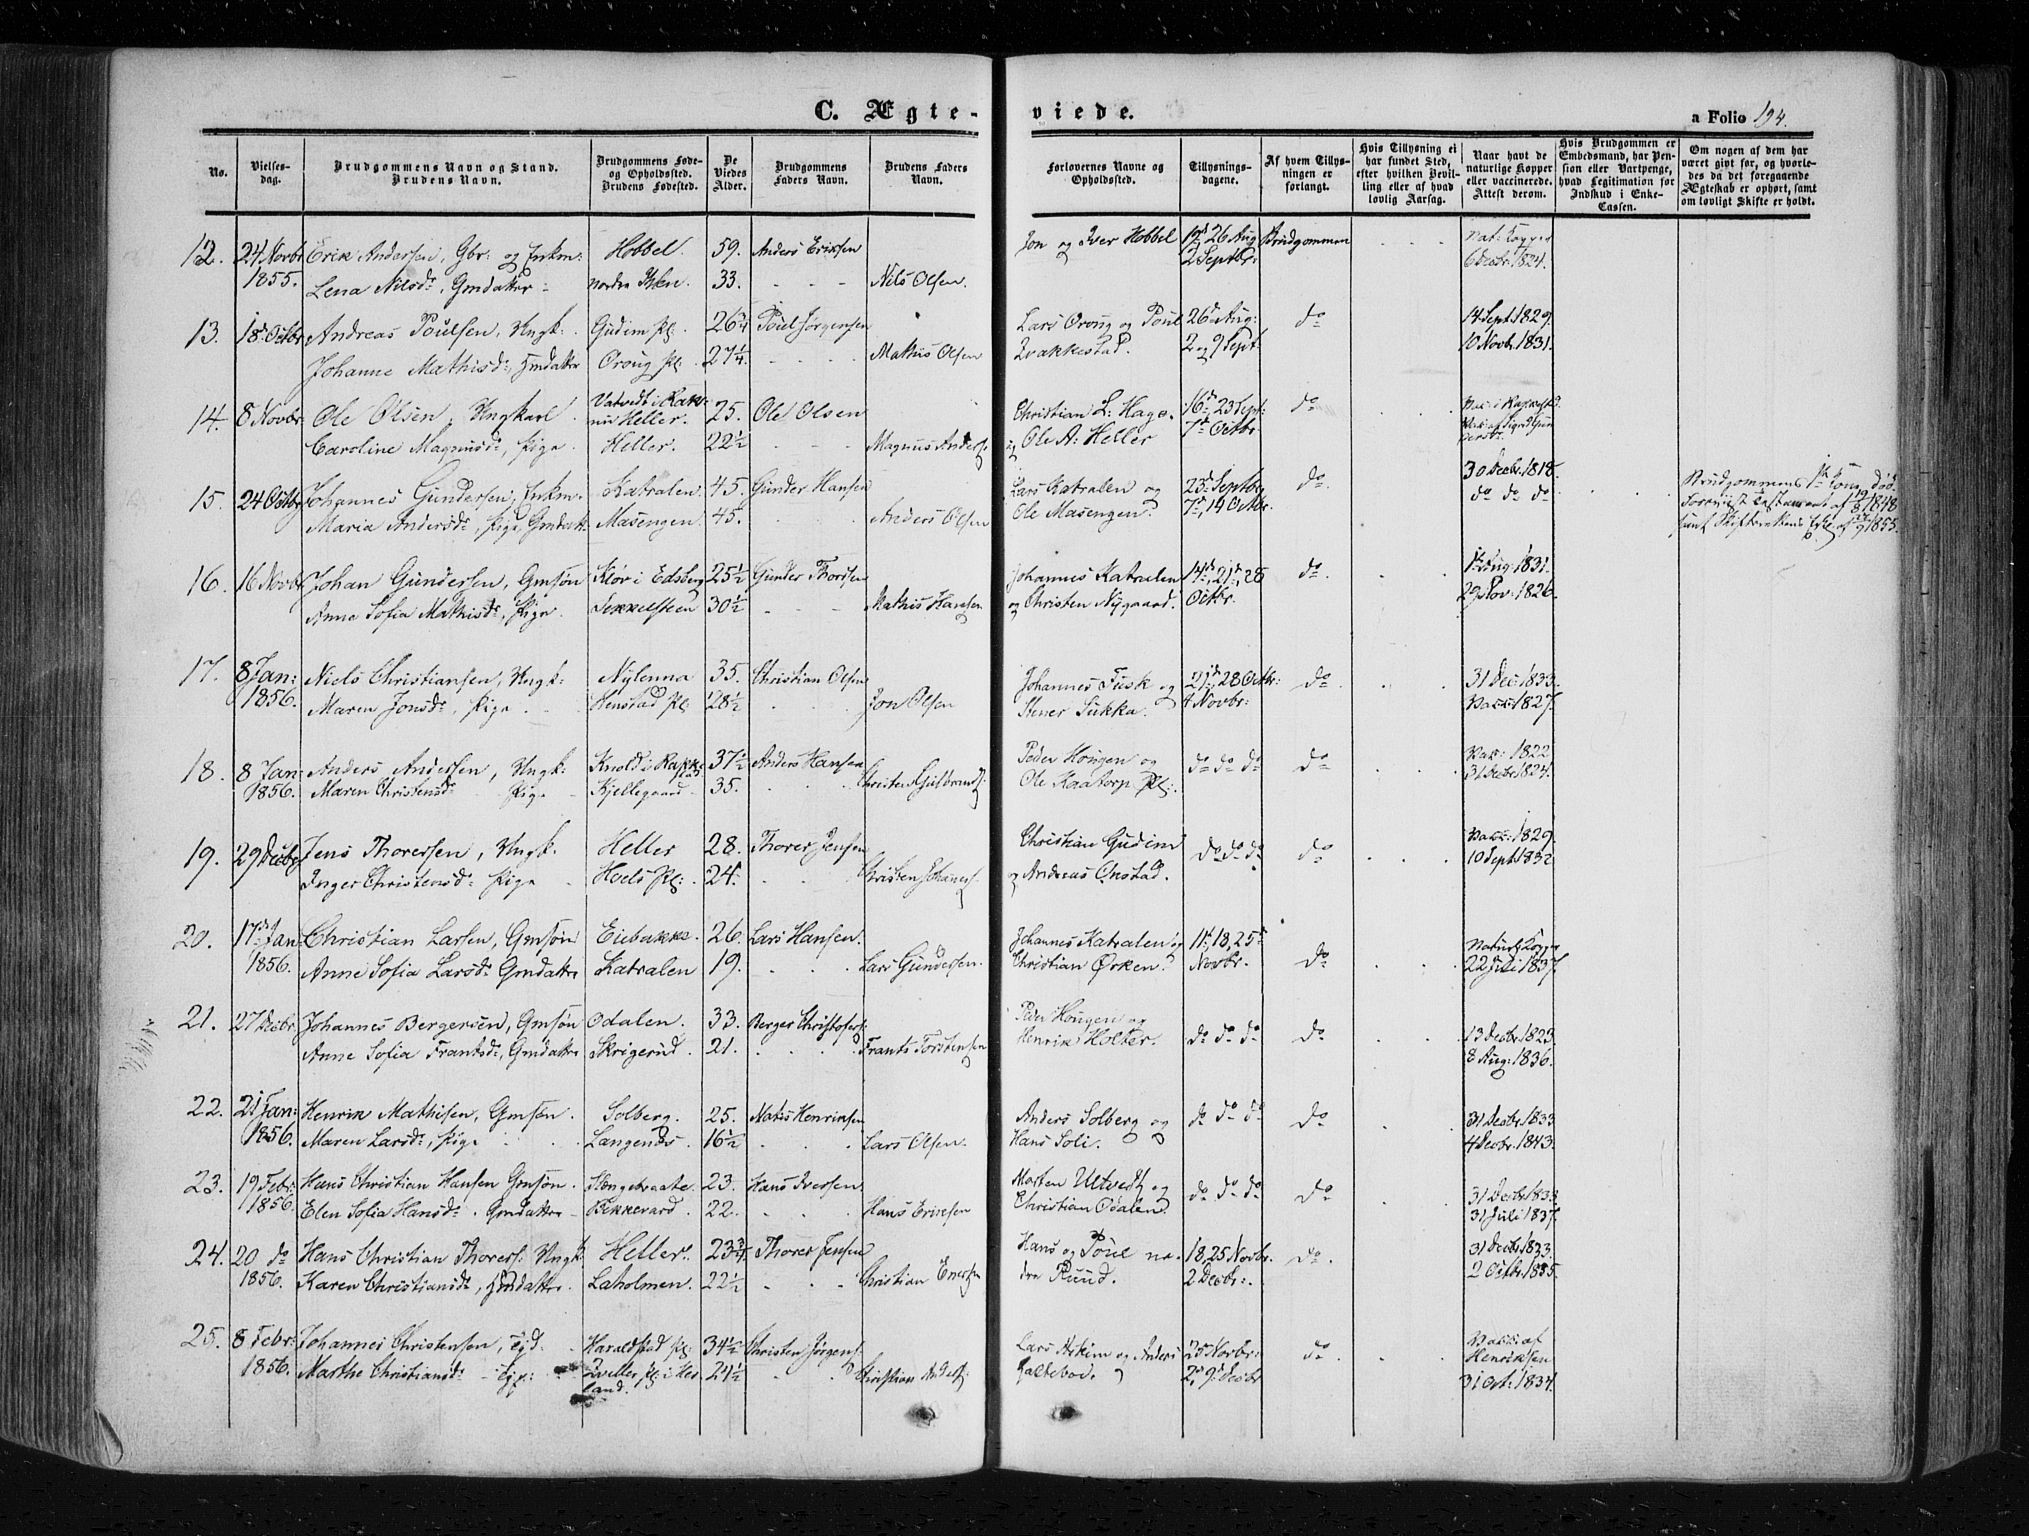 C. Ægte-
viede.
a Folio 194.
No.
Vielses-
dag.
Brudgommens Navn og Stand.
Brudens Navn.
Brudgommens Føde-
og Opholdssted.
Brudens Fødested.
De
Viedes
Alder.
Brudgommens
Faders Navn.
Brudens Faders
Navn.
Forlovernes Navne og
Opholdssted.
Tillysnings-
dagene.
Af hvem Tillys-
ningen er
forlangt.
Hvis Tillysning ei
har fundet Sted,
efter hvilken Bevil-
ling eller af hvad
lovlig Aarsag.
Naar havt de
naturlige Kopper
eller vaccinerede.
Attest derom.
Hvis Brudgommen er
Embedsmand, har Pen-
sion eller Vartpenge,
hvad Legitimation for
Indskud i Enke-
Cassen.
Om nogen af dem har
været givt før, og hvorle-
des da det foregaaende
Ægteskab er ophørt, samt
om lovligt Skifte er holdt.
12. 24 Novbr Erik Andersen, Gbr: og Enkm: Hobbel. 59. Anders Eriksen Jon og Iver Hobbel 26 Aug Brudgommen Nat: Kopper
1855. Lena Nilsd:, Gmdatter nordre 33. Nils Olsen. 2 Septbr: 6 Decbr. 1824.
13. 18 Octbr Andreas Poulsen, Ungk: Gudim Pl. 26¾ Poul Jørgensen Lars Oroug og Poul 26 Aug: do 14 Sept. 1829.
Johanne Mathisd:, Hmdatter Oroug Pl: 27¼ Mathis Olsen Kvakkestad. 2 og 9 Sept: 10 Novbr. 1831.
14. 8 Novbr Ole Olsen, Ungkarl. Vatvedt i Rak: 25. Ole Olsen Christian L: Hage 16, 23 Sept: do
nu Heller.
Caroline Magnusd:, Pige. Heller. 22½ Magnus Anders: og Ole A: Heller 7 Octbr
15. 24 Octbr Johannes Gundersen, Enkm. Katralen 45. Gunder Hansen Lars Katralen og 23 Septbr do. 30 Decbr. 1818. Brudgommens 1te Kone død
Maria Andersd:, Pige, Gmdatt: Masengen. 45. Anders Olsen Ole Masengen. 7, 14 Octbr. do do do
16. 16 Novbr Johan Gundersen, Gmsøn Kløv i Edsberg 25½ Gunder Thorsen Johannes Katralen 14, 21, 28 do. 1 Aug 1831.
Anne Sofia Mathisd:, Pige. 30½ Mathis Hansen og Christen Nygaard. Octbr. 29 Nov: 1826.
17. 8 Jan: Niels Christiansen, Ungk: Nylenna 35. Christian Olsen Johannes Fusk og 21, 28 Octbr: do 31 Dec: 1833.
1856. Maren Jonsd:, Pige Henstad Pl: 28½ Jon Olsen Stener Sukka. 4 Novbr: Vakk: 1827.
18. 8 Jan: Anders Andersen, Ungk: Knold i Rakke- 37½ Anders Hansen Peder Hougen og do do do do Vak: 1822
stad
1856. Maren Christensd: Pige Kjellegaard 35. Christen Gulbrands: Ole Kaatorp Pl: 31 Decbr. 1824.
19. 29 Decbr Jens Thoresen, Ungk. Heller 28. Thorer Jensen Christian Gudim do do do do Vakk: 1829.
Inger Christensd: Pige Hoels Pl: 24. Christen Johanes: og Andreas Onstad. 10 Sept 1832
20. 17 Jan: Christian Larsen, Gmsøn Eiebakke. 26. Lars Hansen. Johannes Katralen og 11, 18, 25 do Naturl. Kopper
1856. Anne Sofia Larsd: Gmdatter Katralen 19. Lars Gundersen. Christian Ørken. Novbr. 22 Juli 1837.
21. 27 Decbr. Johannes Bergersen, Gmsøn Odalen. 33. Berger Christofers: Peder Hougen og do do do do 13 Decbr. 1823.
Anne Sofia Frantsd:, Gmdatter Skrigerud. 21. Frants Torstensen Henrik Holter. 8 Aug: 1836.
22. 21 Jan: Henrik Mathisen, Gmsøn. Solberg. 25. Matis Henriksen Anders Solberg og do do do do 31 Decbr. 1833
1856. Maren Larsd:, Pige Langenæs. 16½ Lars Olsen. Hans Soli. 4 Decbr. 1843.
23. 19 Febr: Hans Christian Hansen Gmsøn. 23. Hans Iversen Morten Ultvedt og do do do do 31 Decbr. 1833
1856. Elen Sofia Hansd: Gmdatter Bekkevard. 22. Hans Eriksen Christian Odalen. 31 Juli 1837.
24. 20 do Hans Christian Thorers: Ungk: Heller. 23¾ Thorer Jensen Hans og Poul no- 18, 25 Novbr. do 31 Decbr. 1833.
1856. Karen Christiansd:, Gmdatter. Laholmen. 22½ Christian Enersen dre Ruud. 2 Decbr: 2 Octbr. 1835.
25. 8 Febr: Johannes Christensen, Haraldstad Pl: 34½ Christen Jørgens: Lars Askim og Anders 25 Novbr: do Vakk: af
Henriksen
1856. Marthe Christiansd: 24½ Christian Anders: 2, 9 Decbr 31 Oct: 1834.